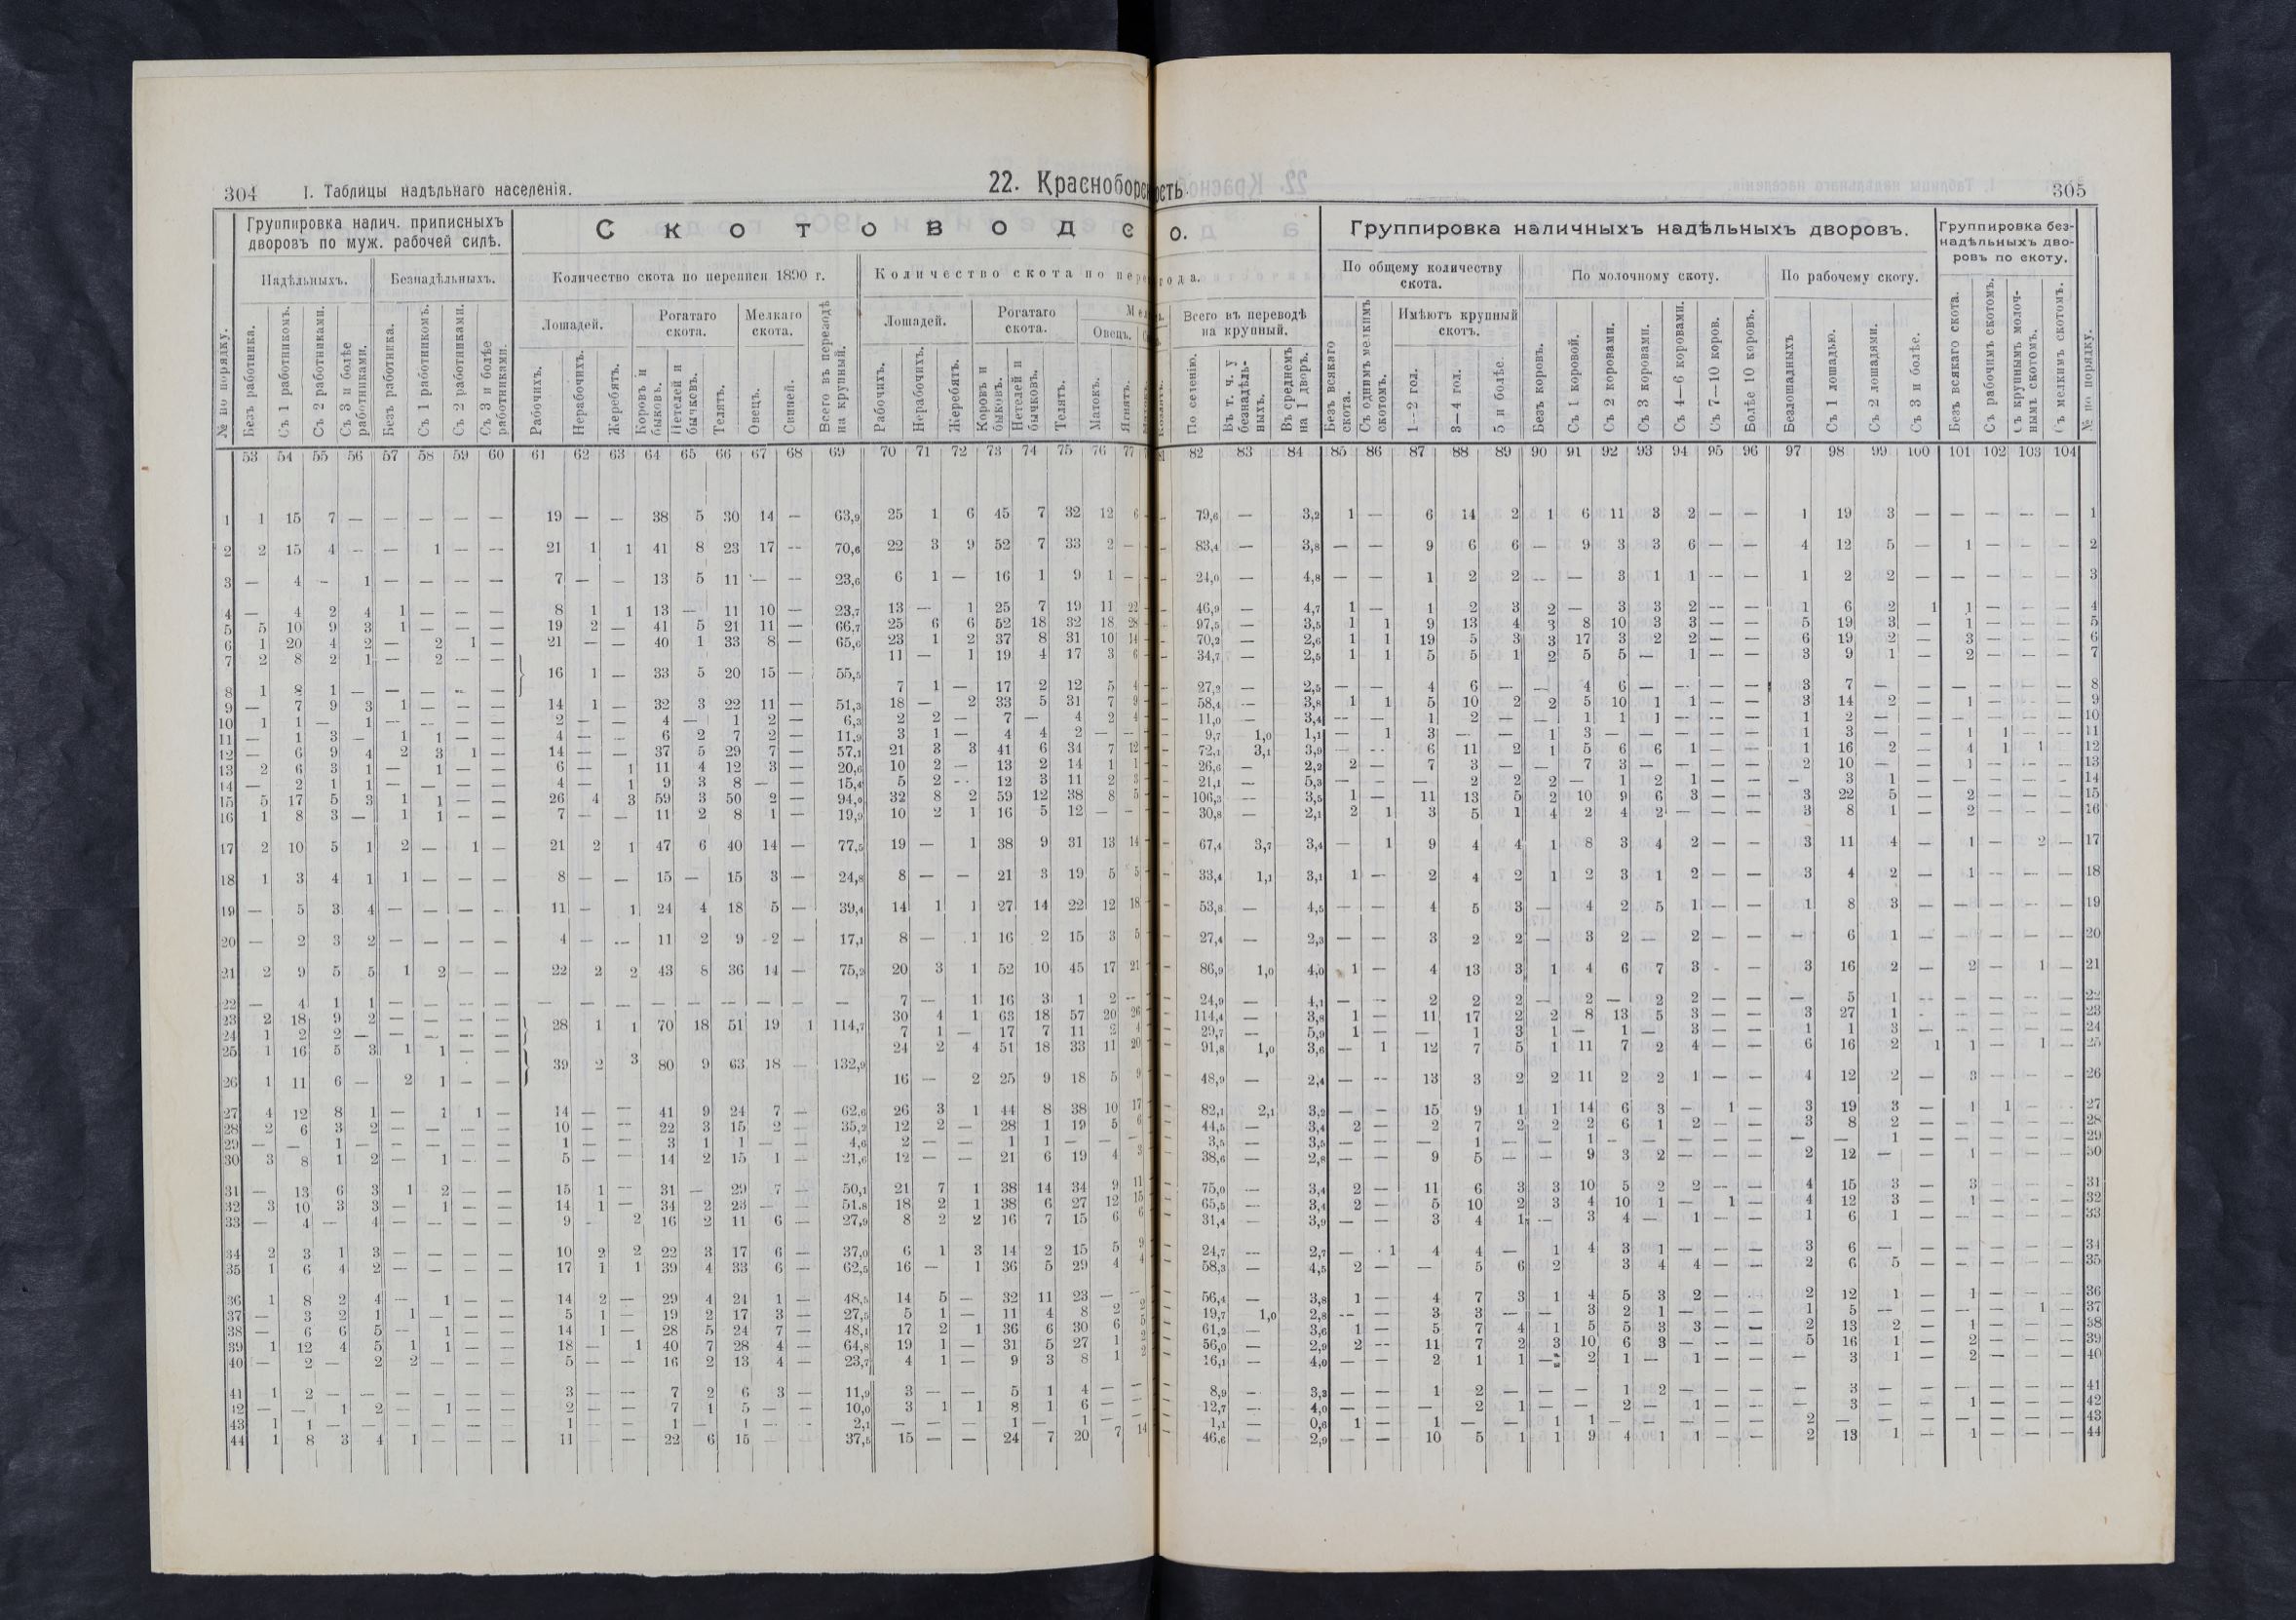 304 I. Таблицы надѣльнаго населенія.
22. Красноборс
Группировка налич. приписныхъ дворовъ по муж. рабочей силѣ.
Надѣльныхъ. Безнадѣльныхъ.
С К О Т О В О Д С
Количество скота по переписи 1890 г.
Количество скота по пере
Лошадей. Рогатаго скота. Мелкаго скота.
Лошадей. Рогатаго скота. Овецъ.
№ по порядку. Безъ работника. Съ 1 работникомъ. Съ 2 работниками. Съ 3 и болѣе работниками. Безъ работника. Съ 1 работникомъ. Съ 2 работниками. Съ 3 и болѣе работниками. Рабочихъ. Нерабочихъ. Жеребятъ. Коровъ и быковъ. Нетелей и бычковъ. Телятъ. Овецъ. Свиней. Всего въ переводѣ на крупный. Рабочихъ. Нерабочихъ. Жеребятъ. Коровъ и быковъ. Нетелей и бычковъ. Телятъ. Матокъ. Ягнятъ.
53 54 55 56 57 58 59 60 61 62 63 64 65 66 67 68 69 70 71 72 73 74 75 76 77
1 1 15 7 — — — — — 19 — — 38 5 30 14 — 63,9 25 1 6 45 7 32 12 6
2 2 15 4 — — 1 — — 21 1 1 41 8 23 17 — 70,6 22 3 9 52 7 33 2 —
3 — 4 — 1 — — — — 7 — — 13 5 11 — — 23,6 6 1 — 16 1 9 1 —
4 — 4 2 4 1 — — — 8 1 1 13 — 11 10 — 23,7 13 — 1 25 7 19 11 22
5 5 10 9 3 1 — — — 19 2 — 41 5 21 11 — 66,7 25 6 6 52 18 32 18 28
6 1 20 4 2 — 2 1 — 21 — — 40 1 33 8 — 65,6 23 1 2 37 8 31 10 14
7 2 8 2 1 — 2 — — 11 — 1 19 4 17 3 6
16 1 — 33 5 20 15 — 55,5
8 1 8 1 — — — — — 7 1 — 17 2 12 5 4
9 — 7 9 3 1 — — — 14 1 — 32 3 22 11 — 51,3 18 — 2 33 5 31 7 9
10 1 1 — 1 — — — — 2 — — 4 — 1 2 — 6,3 2 2 — 7 — 4 2 4
11 — 1 3 — 1 1 — — 4 — — 6 2 7 2 — 11,9 3 1 — 4 4 2 — —
12 — 6 9 4 2 3 1 — 14 — — 37 5 29 7 — 57,1 21 3 3 41 6 34 7 12
13 2 6 3 1 — 1 — — 6 — 1 11 4 12 3 — 20,6 10 2 — 13 2 14 1 1
14 — 2 1 1 — — — — 4 — 1 9 3 8 — — 15,4 5 2 — 12 3 11 2 3
15 5 17 5 3 1 1 — — 26 4 3 59 3 50 2 — 94,0 32 8 2 59 12 38 8 5
16 1 8 3 — 1 1 — — 7 — — 11 2 8 1 — 19,9 10 2 1 16 5 12 — —
17 2 10 5 1 2 — 1 — 21 2 1 47 6 40 14 — 77,5 19 — 1 38 9 31 13 14
18 1 3 4 1 1 — — — 8 — — 15 — 15 3 — 24,8 8 — — 21 3 19 5 5
19 — 5 3 4 — — — — 11 — 1 24 4 18 5 — 39,4 14 1 1 27 14 22 12 18
20 — 2 3 2 — — — — 4 — — 11 2 9 2 — 17,1 8 — 1 16 2 15 3 5
21 2 9 5 5 1 2 — — 22 2 2 43 8 36 14 — 75,2 20 3 1 52 10 45 17 21
22 — 4 1 1 — — — — — — — — — — — — — 7 — 1 16 3 1 2 —
23 2 18 9 2 — — — — 30 4 1 63 18 57 20 26
28 1 1 70 18 51 19 1 114,7
24 1 2 2 — — — — — 7 1 — 17 7 11 2 4
25 1 16 5 3 1 1 — — 24 2 4 51 18 33 11 20
39 2 3 80 9 63 18 — 132,9
26 1 11 6 — 2 1 — — 16 — 2 25 9 18 5 9
27 4 12 8 1 — 1 1 — 14 — — 41 9 24 7 — 62,6 26 3 1 44 8 38 10 17
28 2 6 3 2 — — — — 10 — — 22 3 15 2 — 35,2 12 2 — 28 1 19 5 6
29 — — 1 — — — — — 1 — — 3 1 1 — — 4,6 2 — — 1 1 — — —
30 3 8 1 2 — 1 — — 5 — — 14 2 15 1 — 21,6 12 — — 21 6 19 4 3
31 — 13 6 3 1 2 — — 15 1 — 31 — 29 7 — 50,1 21 7 1 38 14 34 9 11
32 3 10 3 3 — 1 — — 14 1 — 34 2 23 — — 51,8 18 2 1 38 6 27 12 15
33 — 4 — 4 — — — — 9 — 2 16 2 11 6 — 27,9 8 2 2 16 7 15 6 6
34 2 3 1 3 — — — — 10 2 2 22 3 17 6 — 37,0 6 1 3 14 2 15 5 9
35 1 6 4 2 — — — — 17 1 1 39 4 33 6 — 62,5 16 — 1 36 5 29 4 4
36 1 8 2 4 — 1 — — 14 2 — 29 4 21 1 — 48,5 14 5 — 32 11 23 — —
37 — 3 2 1 1 — — — 5 1 — 19 2 17 3 — 27,5 5 1 — 11 4 8 2 2
38 — 6 6 5 — 1 — — 14 1 — 28 5 24 7 — 48,1 17 2 1 36 6 30 6 5
39 1 12 4 5 1 1 — — 18 — 1 40 7 28 4 — 64,8 19 1 — 31 5 27 1 2
40 — 2 — 2 2 — — — 5 — — 16 2 13 4 — 23,7 4 1 — 9 3 8 1
41 1 2 — — — — — — 3 — — 7 2 6 3 — 11,9 3 — — 5 1 4 — —
42 — — 1 2 — 1 — — 2 — — 7 1 5 — — 10,0 3 1 1 8 1 6 — —
43 1 1 — — — — — — 1 — — 1 — 1 — — 2,1 — — — 1 — 1 — —
44 1 8 3 4 1 — — — 11 — — 22 6 15 — — 37,5 15 — — 24 7 20 7 14
ость.
305
О.
года.
Всего въ переводѣ на крупный.
Группировка наличныхъ надѣльныхъ дворовъ.
По общему количеству скота. По молочному скоту. По рабочему скоту.
Имѣютъ крупный скотъ.
Группировка безнадѣльныхъ дворовъ по скоту.
По селенію. Въ т. ч. у безнадѣльныхъ. Въ среднемъ на 1 дворъ. Безъ всякаго скота. Съ однимъ мелкимъ скотомъ. 1—2 гол. 3—4 гол. 5 и болѣе. Безъ коровъ. Съ 1 коровой. Съ 2 коровами. Съ 3 коровами. Съ 4—6 коровами. Съ 7—10 коров. Болѣе 10 коровъ. Безлошадныхъ Съ 1 лошадью. Съ 2 лошадями. Съ 3 и болѣе. Безъ всякаго скота. Съ рабочимъ скотомъ. Съ крупнымъ молочнымъ скотомъ. Съ мелкимъ скотомъ. № по порядку.
82 83 84 85 86 87 88 89 90 91 92 93 94 95 96 97 98 99 100 101 102 103 104
79,6 — 3,2 1 — 6 14 2 1 6 11 3 2 — — 1 19 3 — — — — — 1
83,4 — 3,8 — — 9 6 6 — 9 3 3 6 — — 4 12 5 — 1 — — — 2
24,0 — 4,8 — — 1 2 2 — — 3 1 1 — — 1 2 2 — — — — — 3
46,9 — 4,7 1 — 1 2 3 2 — 3 3 2 — — 1 6 2 1 1 — — — 4
97,5 — 3,5 1 1 9 13 4 3 8 10 3 3 — — 5 19 3 — 1 — — — 5
70,2 — 2,6 1 1 19 5 3 3 17 3 2 2 — — 6 19 2 — 3 — — — 6
34,7 — 2,5 1 1 5 5 1 2 5 5 — 1 — — 3 9 1 — 2 — — — 7
27,2 — 2,5 — — 4 6 — — 4 6 — — — — 3 7 — — — — — — 8
58,4 — 3,8 1 1 5 10 2 2 5 10 1 1 — — 3 14 2 — 1 — — — 9
11,0 — 3,4 — — 1 2 — — 1 1 1 — — — 1 2 — — — — — — 10
9,7 1,0 1,1 — 1 3 — — 1 3 — — — — — 1 3 — — 1 1 — — 11
72,1 3,1 3,9 — — 6 11 2 1 5 6 6 1 — — 1 16 2 — 4 1 1 — 12
26,6 — 2,2 2 — 7 3 — — 7 3 — — — — 2 10 — — 1 — — — 13
21,1 — 5,3 — — — 2 2 2 — 1 2 1 — — — 3 1 — — — — — 14
106,3 — 3,5 1 — 11 13 5 2 10 9 6 3 — — 3 22 5 — 2 — — — 15
30,8 — 2,1 2 1 3 5 1 4 2 4 2 — — — 3 8 1 — 2 — — — 16
67,4 3,7 3,4 — 1 9 4 4 1 8 3 4 2 — — 3 11 4 — 1 — 2 — 17
33,4 1,1 3,1 1 — 2 4 2 1 2 3 1 2 — — 3 4 2 — 1 — — — 18
53,8 — 4,5 — — 4 5 3 — 4 2 5 1 — — 1 8 3 — — — — — 19
27,4 — 2,3 — — 3 2 2 — 3 2 — 2 — — — 6 1 — — — — — 20
86,9 1,0 4,0 1 — 4 13 3 1 4 6 7 3 — — 3 16 2 — 2 — 1 — 21
24,9 — 4,1 — — 2 2 2 — 2 — 2 2 — — — 5 1 — — — — — 22
114,4 — 3,8 1 — 11 17 2 2 8 13 5 3 — — 3 27 1 — — — — — 23
29,7 — 5,9 1 — — 1 3 1 — 1 — 3 — — 1 1 3 — — — — — 24
91,8 1,0 3,6 — 1 12 7 5 1 11 7 2 4 — — 6 16 2 1 1 — 1 — 25
48,9 — 2,4 — — 13 3 2 2 11 2 2 1 — — 4 12 2 — 3 — — — 26
82,1 2,1 3,2 — — 15 9 1 1 14 6 3 — 1 — 3 19 3 — 1 1 — — 27
44,5 — 3,4 2 — 2 7 2 2 2 6 1 2 — — 3 8 2 — — — — — 28
3,5 — 3,5 — — — 1 — — 1 — — — — — — — 1 — — — — — 29
38,6 — 2,8 — — 9 5 — — 9 3 2 — — — 2 12 — — 1 — — — 30
75,0 — 3,4 2 — 11 6 3 3 10 5 2 2 — — 4 15 3 — 3 — — — 31
65,5 — 3,4 2 — 5 10 2 3 4 10 1 — 1 — 4 12 3 — 1 — — — 32
31,4 — 3,9 — — 3 4 1 — 3 4 — 1 — — 1 6 1 — — — — — 33
24,7 — 2,7 — 1 4 4 — 1 4 3 1 — — — 3 6 — — — — — — 34
58,3 — 4,5 2 — — 5 6 2 3 4 4 — — 2 6 5 — — — — — 35
56,4 — 3,8 1 — 4 7 3 1 4 5 3 2 — — 2 12 1 — 1 — — — 36
19,7 1,0 2,8 — — 3 3 — — 3 2 1 — — — 1 5 — — — — 1 — 37
61,2 — 3,6 1 — 5 7 4 1 5 5 3 3 — — 2 13 2 — 1 — — — 38
56,0 — 2,9 2 — 11 7 2 3 10 6 3 — — — 5 16 1 — 2 — — — 39
16,1 — 4,0 — — 2 1 1 — 2 1 — 1 — — — 3 1 — 2 — — — 40
8,9 — 3,3 — — 1 2 — — — 1 2 — — — — 3 — — — — — — 41
12,7 — 4,0 — — — 2 1 — — 2 — 1 — — — 3 — — 1 — — — 42
1,1 — 0,6 1 — 1 — — 1 1 — — — — — 2 — — — — — — — 43
46,6 — 2,9 — — 10 5 1 1 9 4 1 1 — — 2 13 1 — 1 — — — 44